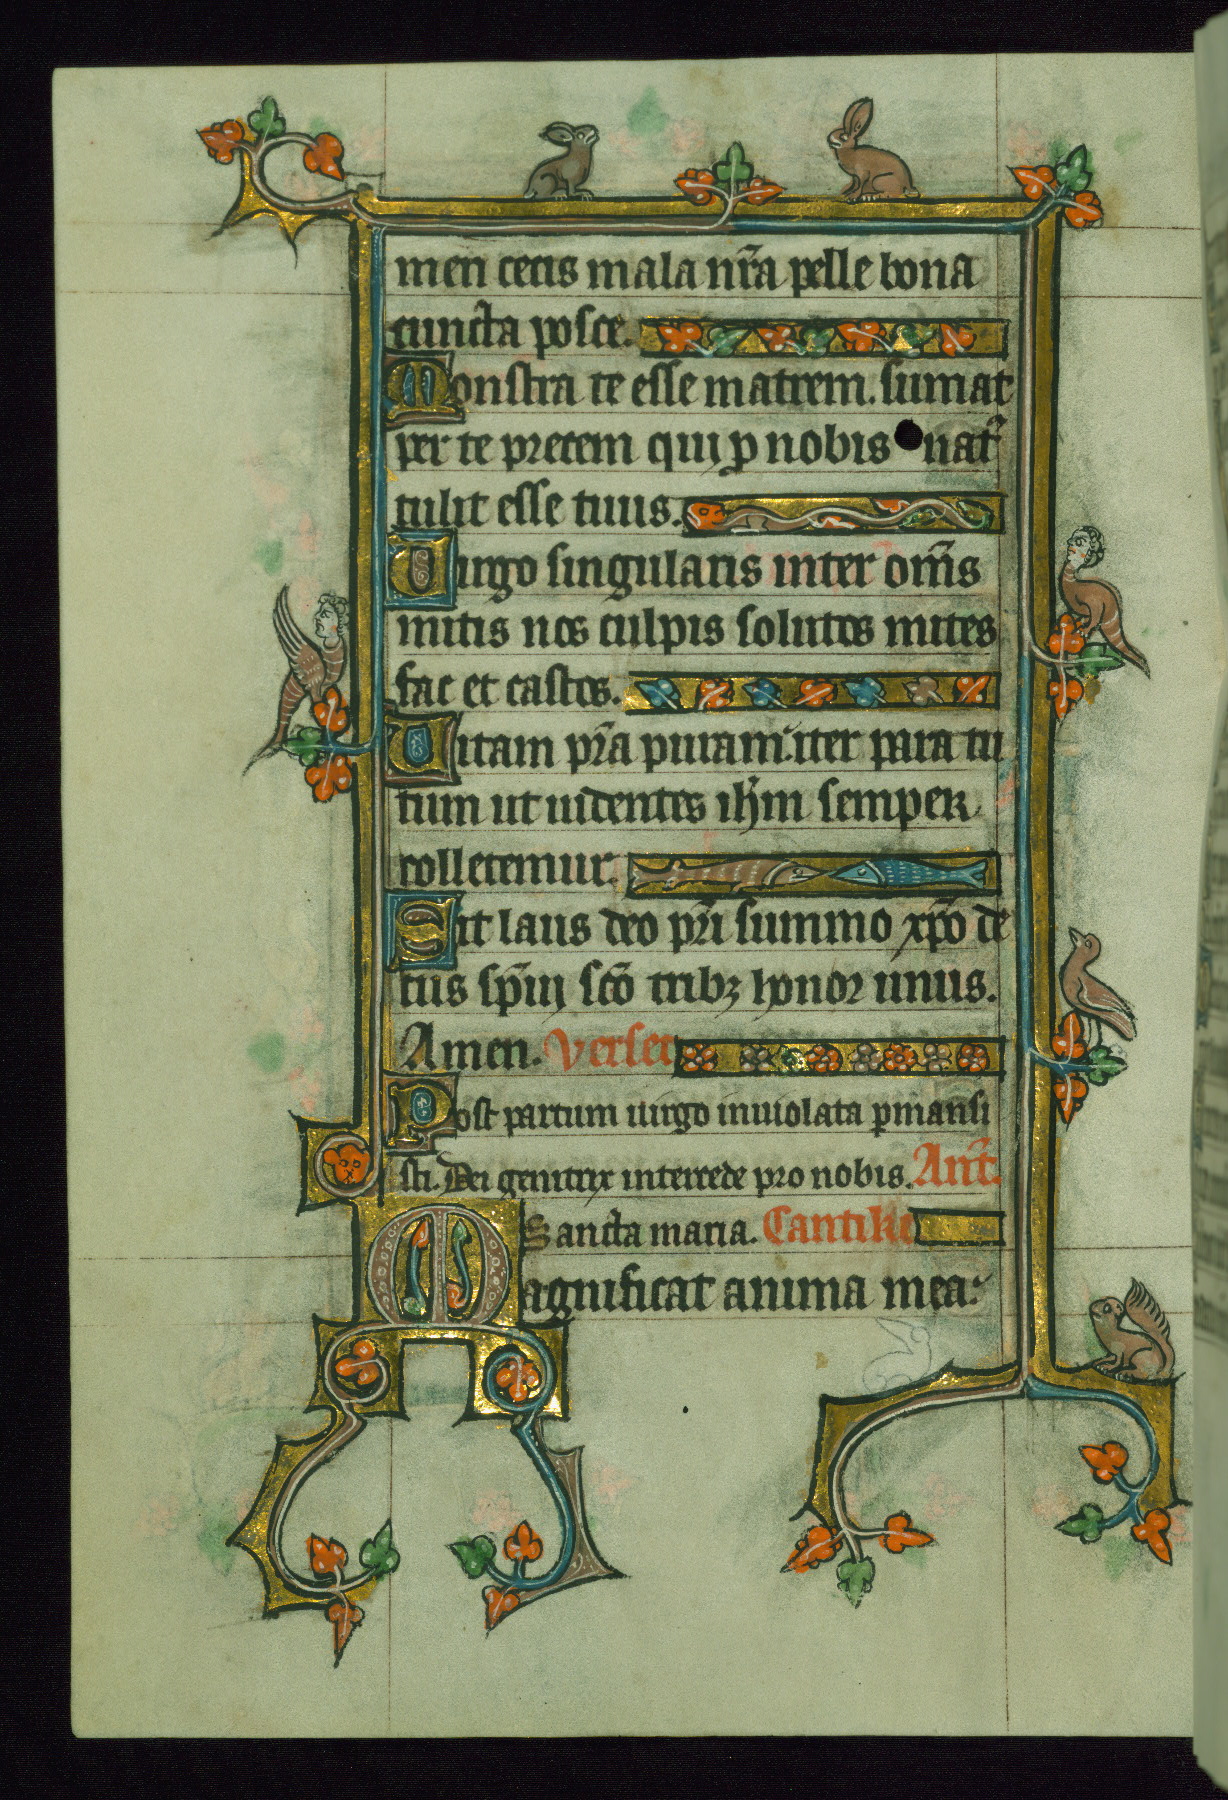 men cecis mala nr̃a pelle bona
cuncta posce.
Monstra te esse matrem. sumat
per te precem qui p nobis nat᷑
tulit esse tuus.
Uirgo singularis inter om̃s
mitis nos culpis solutos mites
fac et castos.
Uitam pr̃a puram. iter para tu
tum ut uidentes ih̃m semper
colletemur.
Sit laus deo pr̃i summo xp̃o de
cus sp̃ui sc̃o tribꝫ honor unus.
Amen. Verset
Post partum uirgo inuiolata pmansi
sti. Dei genitrix intercede pro nobis. Ant̃.
Sancta maria. Cantike
Magnificat anima mea.